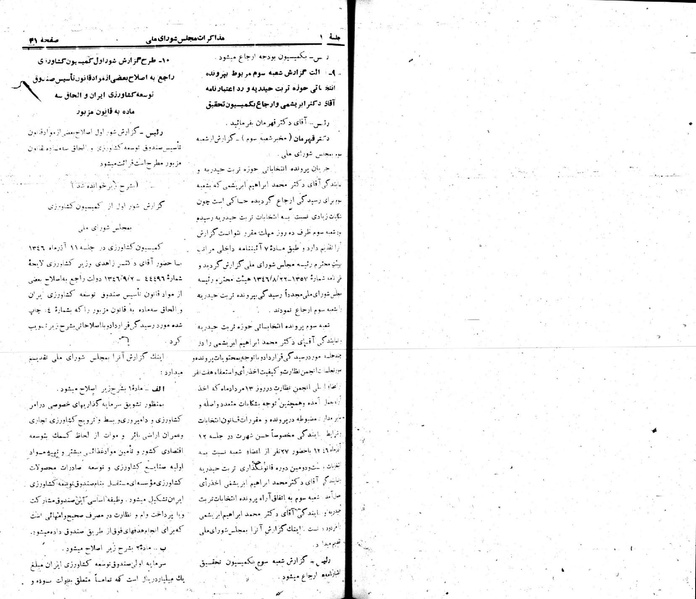 جلسهٔ ۱
مذاکرات مجلس شورای ملی
صفحهٔ ۳۱
رئیس ـ بکمیسیون بودجه ارجاع میشود.
۹ـ الت گزارش شعبه سوم مربوط بپرونده
انتخاباتی حوزه تربت حیدریه و رد اعتبارنامه
آقای دکتر ابریشمی وارجاع بکمیسیون تحقیق
رئیس ـ آقای دکتر قهرمان بفرمائید.
دکترقهرمان (مخبرشعبه سوم) ـ گزارش ازشعبه
سوم بمجلس شورای ملی.
جریان پرونده انتخاباتی حوزه تربت حیدریه و
نمایندگی آقای دکتر محمد ابراهیم ابریشمی که بشعبه
سوم برای رسیدگی ارجاع گردیده حاکی است چون
شکایات زیادی نسبت به انتخابات تربت حیدریه رسیده و
شعبه سوم ظرف ده روز مهلت مقرر نتوانست گزارش
تقدیم دارد و طبق ماده ۷ آئیننامه داخلی مراتب
هیئت محترم رئیسه مجلس شورای ملی گزارش گردید و
نامه شماره ۱۳۵۷ـ۱۳۴۶/۸/۲۲ هیئت محترم رئیسه
مجلس شورای ملی مجدداً رسیدگی بپرونده تربت حیدریه
بشعبه سوم ارجاع نمودند.
شعبه سوم پرونده انتخاباتی حوزه تربت حیدریه و
نمایندگی آقای دکتر محمد ابراهیم ابریشمی را در
جلسه مورد رسیدگی قرارداد و با توجه بمحتویات پرونده و
انجمن نظارت و کیفیت اخذ رأی و استعفاء هفت نفر
انجمن نظارت در روز ۱۳ مرداد ماه که اخذ
آمده و همچنین توجه بشکایات متعدد واصله و
مضبوطه در پرونده و مقررات قانون انتخابات
نمایندگی مخصوصاً حسن شهرت در جلسه ۱۲
باحضور ۲۷نفر از اعضاء شعبه نسبت به
دوره قانونگذاری تربت حیدریه
نمایندگی آقای دکتر محمد ابراهیم ابریشمی اخذ رأی
شعبه سوم به اتفاق آراء پرونده انتخابات تربت
حیدریه و نمایندگی آقای دکتر محمد ابراهیم ابریشمی
اینک گزارش آنرا بمجلس شورای ملی
تقدیم میدارد.
رئیس ـ گزارش شعبه سوم بکمیسیون تحقیق
ارجاع میشود.
۱۰ـ طرح گزارش شور اول کمیسیون کشاورزی
راجع به اصلاح بعضی از مواد قانون تأسیس صندوق
توسعه کشاورزی ایران و الحاق سه
ماده به قانون مزبور
رئیس ـ گزارش شور اول اصلاح بعضی از مواد قانون
تأسیس صندوق توسعه کشاورزی و الحاق سه ماده بقانون
مزبور مطرح است قرائت میشود
(بشرح زیر خوانده شد)
گزارش شور اول از کمیسیون کشاورزی
بمجلس شورای ملی
کمیسیون کشاورزی در جلسه ۱۱ آذر ماه ۱۳۴۶
با حضور آقای دکتر زاهدی وزیر کشاورزی لایحهٔ
شمارهٔ ۴۴۴۹۶ ـ ۱۳۴۶/۹/۲ دولت راجع به اصلاح بعضی
از مواد قانون تأسیس صندوق توسعه کشاورزی ایران
و الحاق سه ماده به قانون مزبور را که بشمارهٔ ۴ چاپ
شده مورد رسیدگی قرارداد و با اصلاحاتی بشرح زیر تصویب
کرد.
اینک گزارش آنرا بمجلس شورای ملی تقدیم
میدارد:
الف ـ ماده۱ بشرح زیر اصلاح میشود.
بمنظور تشویق سرمایه گذاریهای خصوصی در امر
کشاورزی و دامپروری و بسط و ترویج کشاورزی تجاری
و عمران اراضی بائر و موات از لحاظ کمک بتوسعه
اقتصادی کشور و تأمین مواد غذائی بیشتر و تهیه مواد
اولیه صنایع کشاورزی و توسعه صادرات محصولات
کشاورزی مؤسسه‌ای مستقل بنام صندوق توسعه کشاورزی
ایران تشکیل میشود. وظیفه اساسی این صندوق مشارکت
و یا پرداخت وام و نظارت در مصرف صحیح وامهائی است
که برای انجام هدفهای فوق از طریق صندوق داده میشود.
ب ـ ماده۲ بشرح زیر اصلاح میشود.
سرمایه اولی صندوق توسعه کشاورزی ایران مبلغ
یک میلیارد ریال است که تماماً متعلق بدولت بوده و